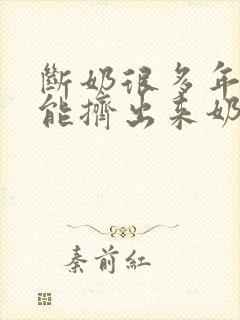 斷奶很多年
能擠出來奶
秦前紅